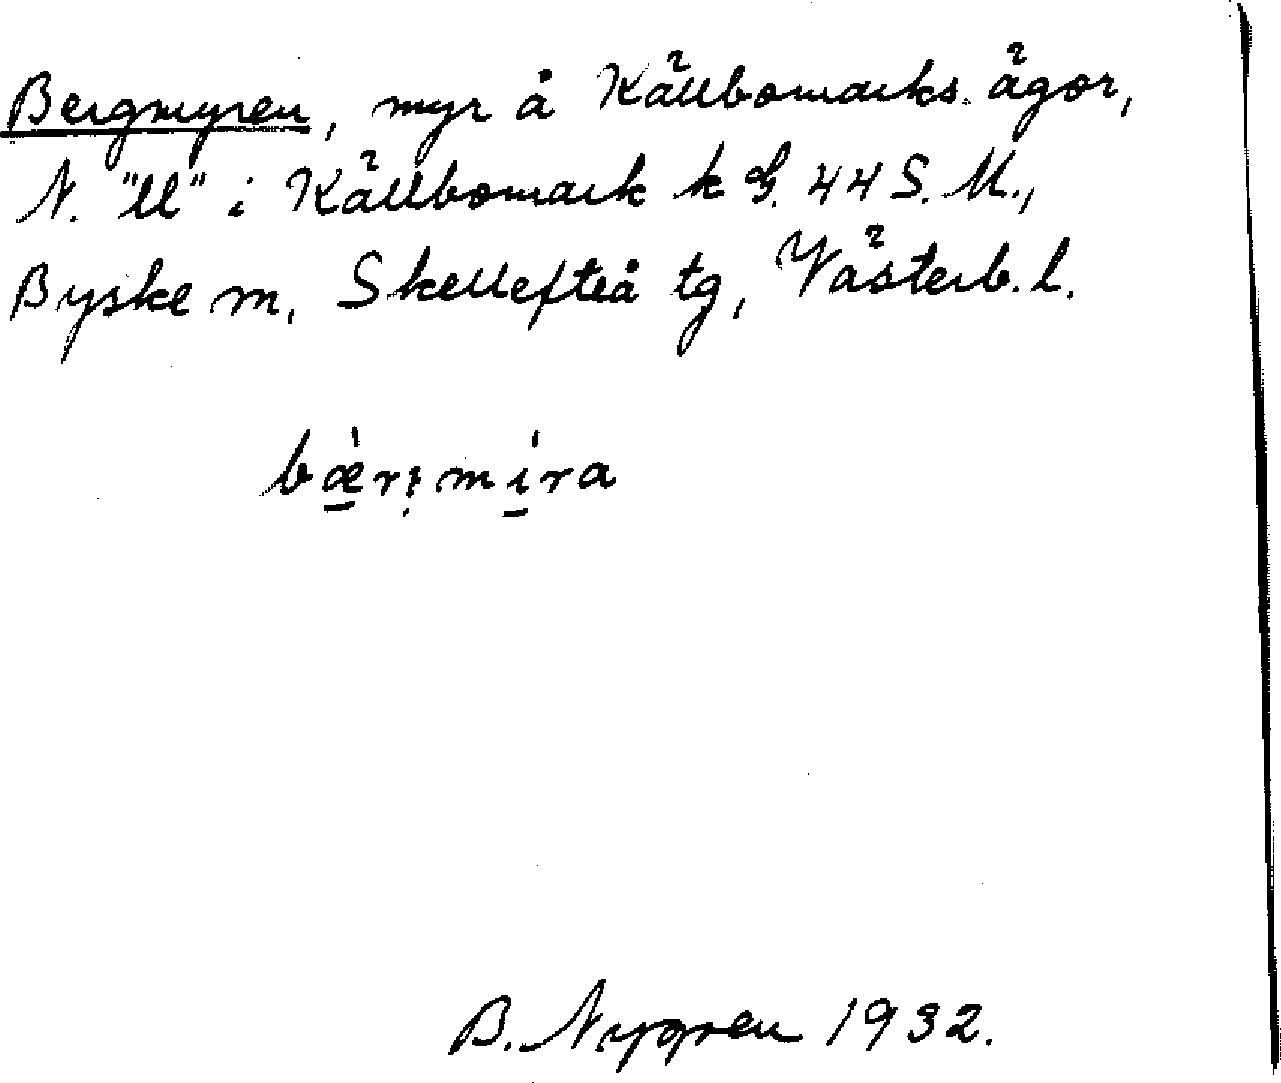 Bergmyren, myr å Källbomarks ägor,
N. "ll" i Källbomark k G. 44 S. M.,
Byske sn, Skellefteå tg, Västerb. l.
B. Nygren 1932.